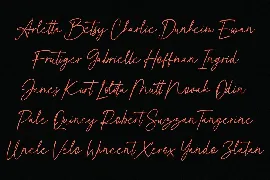 Arletta Betsy Charlie Dunkein Ewan
Frutiger Gabrielle Hoffman Ingrid
James Kurt Lolita Mutt Novak Odin
Pale Quincy Robert Suzzan Tangerine
Uncle Velo Wincent Xerox Yando Zlatan